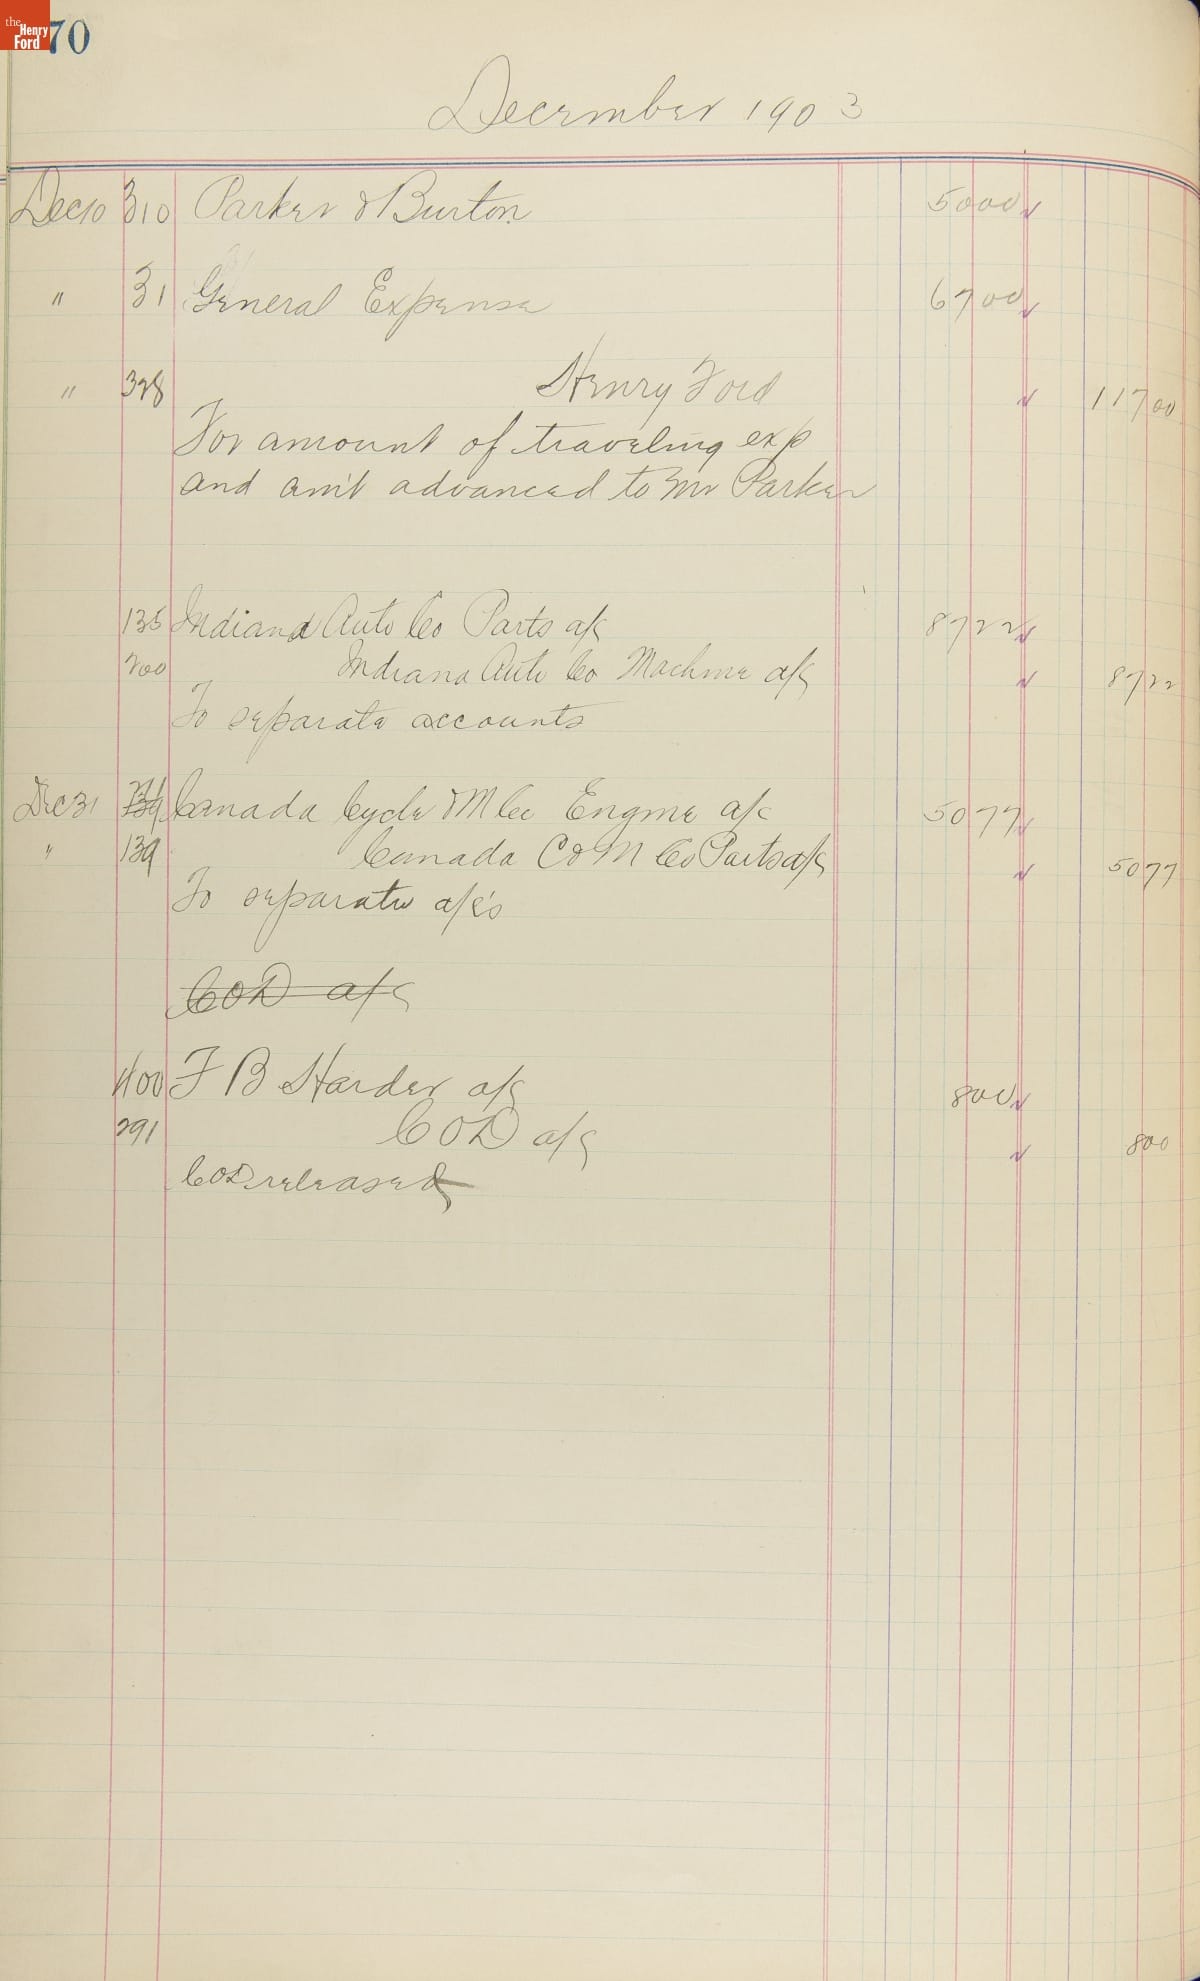 the Henry Ford
70
December 1903
Dec 10 310 Parker & Burton 5000
" 31 General Expense 6700
" 328 Henry Ford 11700
For amount of traveling exp
and am't advanced to Mr Parker
135 Indiana Auto Co Parts a/c 8722
200 Indiana Auto Co Machine a/c 8722
To separate accounts
Dec 31 Canada Cycle & M Co Engine a/c 5077
" 139 Canada C & M Co Parts a/c 5077
To separate a/c's
COD a/c
400 F B Harder a/c 800
291 COD a/c 800
COD released